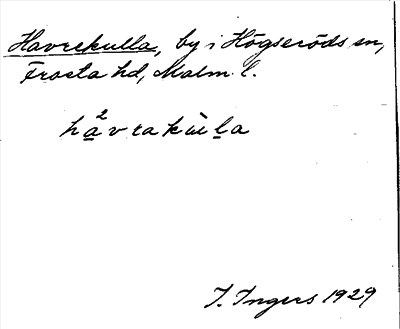 Havrekulla, by i Högseröds sn,
Frosta hd, Malm. l.
ha²vrakùl̲a
I. Ingers 1929